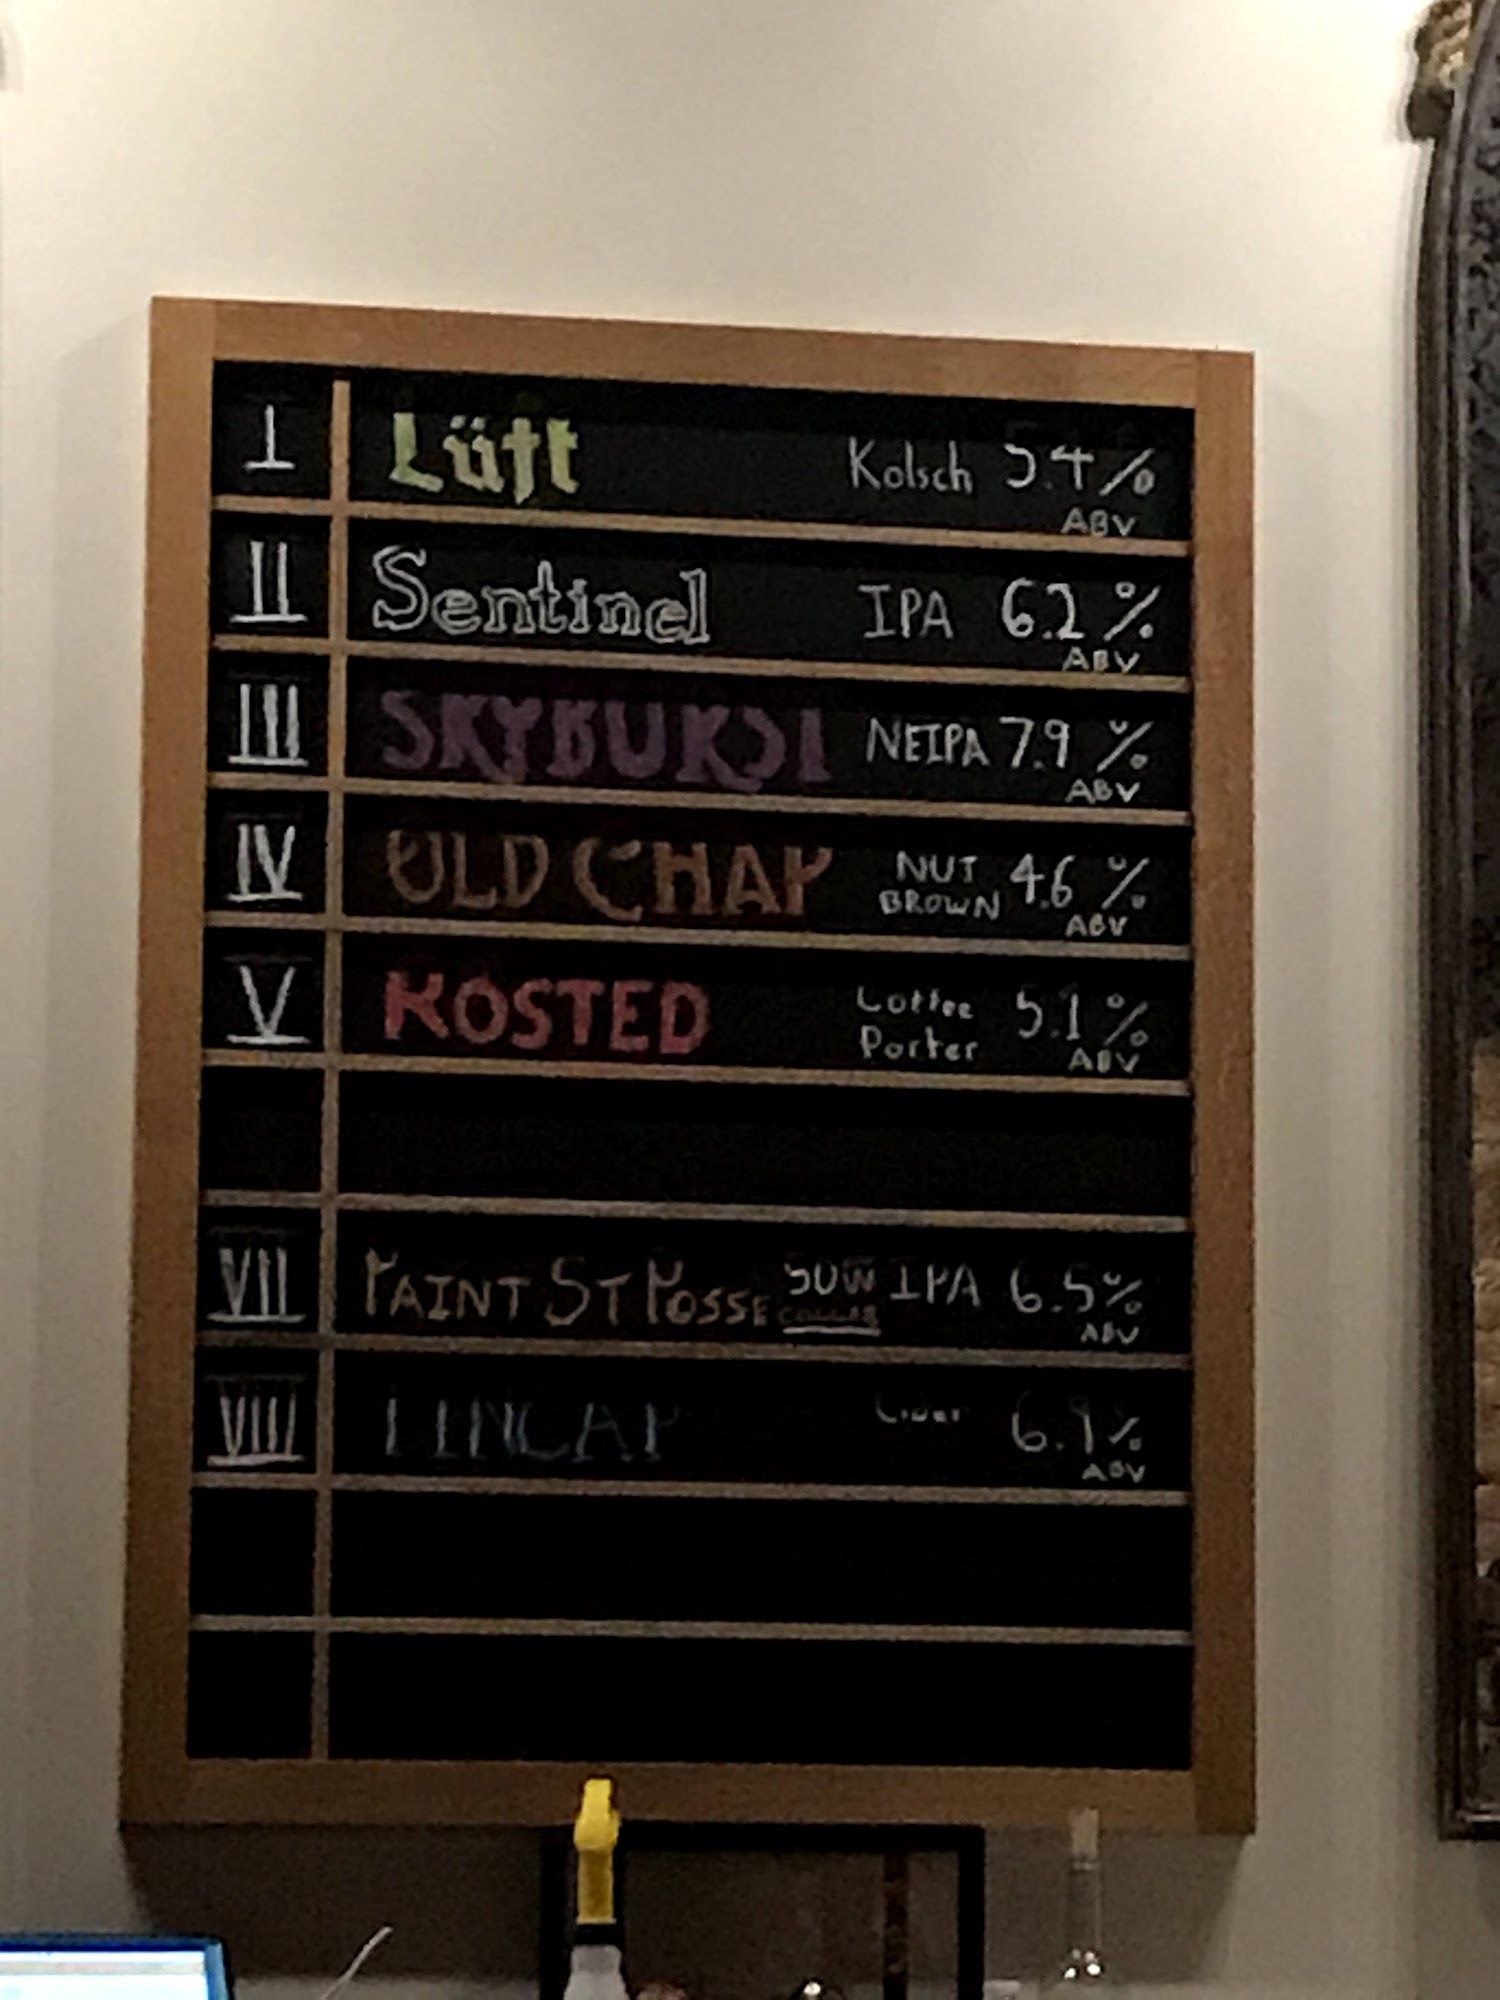 I Lüft Kolsch 5.4%
ABV
II Sentinel IPA 6.2%
ABV
III SKYBURST NEIPA 7.9%
ABV
IV OLD CHAP NUT BROWN 4.6%
ABV
V ROSTED Coffee Porter 5.1%
ABV
VII PAINT ST POSSE SOUR COLLAB IPA 6.5%
ABV
VIII Cider 6.9%
ABV